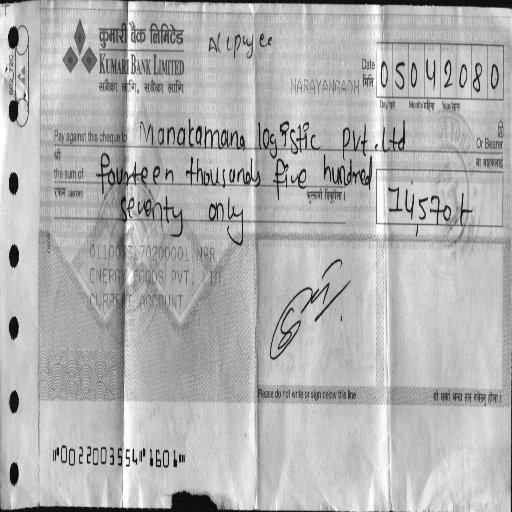 कुमारी बैंक लिमिटेड
KUMARI BANK LIMITED
सबैका लागि, सधैंका लागि
A/c payee
NARAYANGADH
Date
मिति
05042080
Day/गते Month/महिना Year/साल
Pay against this cheque to Manakamana logistic pvt. ltd
Or Bearer
श्री
वा वाहकलाई
the sum of fourteen thousands five hundred
रकम अक्षरमा
seventy only
14,570/-
NPR
ENERGY FOODS PVT. LTD.
CURRENT ACCOUNT
Please do not write or sign below this line
⑈0022003554⑈1601⑈